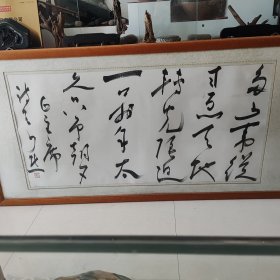 多少事从
来急天地
转光阴迫
一万年太
久只争朝夕
毛主席